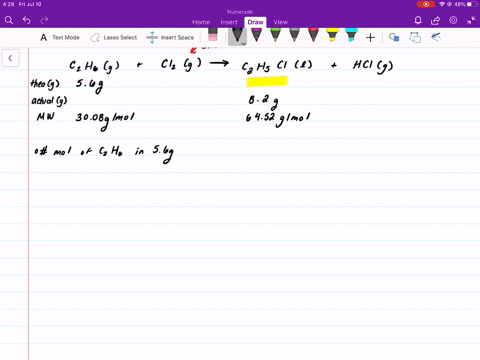 4:28 Fri Jul 10
48%
Numerade
Home Insert Draw View
Text Mode Lasso Select Insert Space
C₂H₆(g) + Cl₂(g) → C₂H₅Cl(l) + HCl(g)
theo(g) 5.6g
actual(g) 8.2g
MW 30.08g/mol 64.52g/mol
# mol of C₂H₆ in 5.6g